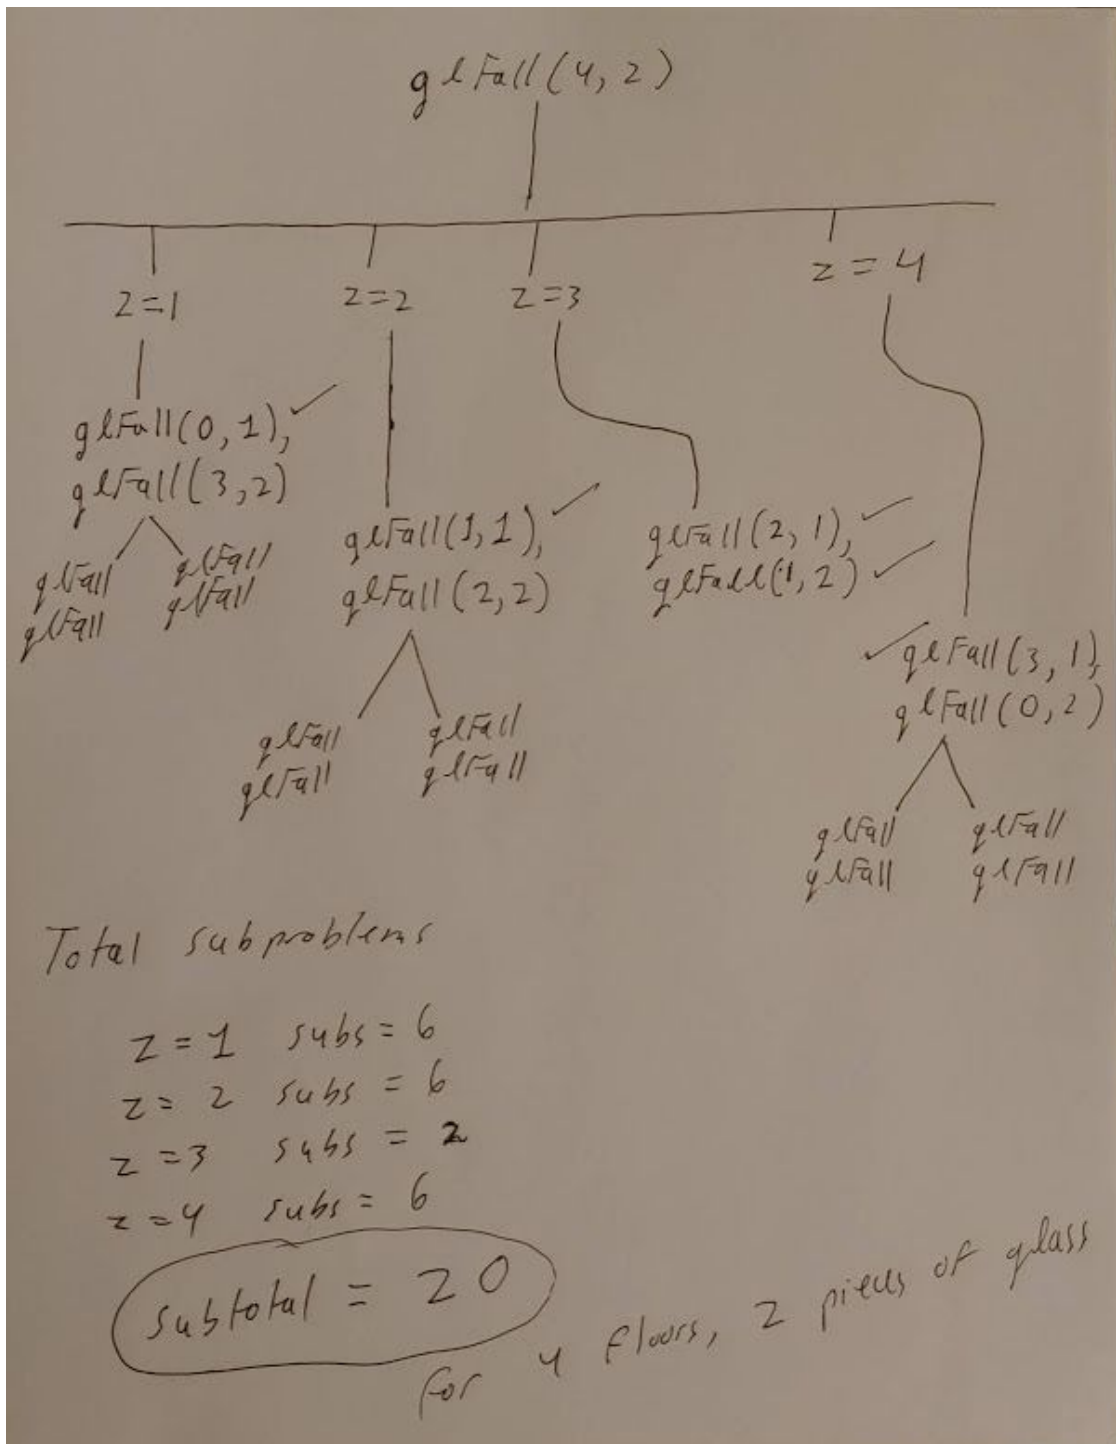 glFall(4, 2)
z=1
z=2
z=3
z=4
glFall(0, 1), ✓
glFall(3, 2)
glFall glFall
glFall glFall
glFall(1, 1), ✓
glFall(2, 2)
glFall glFall
glFall glFall
glFall(2, 1), ✓
glFall(1, 2) ✓
✓ glFall(3, 1),
glFall(0, 2)
glFall glFall
glFall glFall
Total subproblems
z = 1 subs = 6
z = 2 subs = 6
z = 3 subs = 2
z = 4 subs = 6
subtotal = 20
for 4 floors, 2 pieces of glass